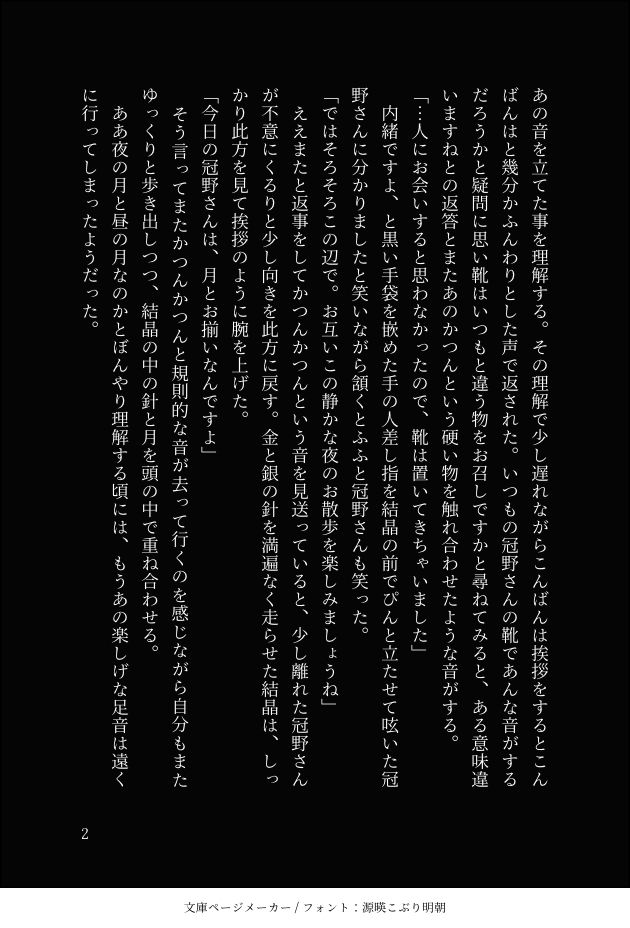 あの音を立てた事を理解する。その理解で少し遅れながらこんばんは挨拶をするとこん
ばんはと幾分かふんわりとした声で返された。いつもの冠野さんの靴であんな音がする
だろうかと疑問に思い靴はいつもと違う物をお召しですかと尋ねてみると、ある意味違
いますねとの返答とまたあのかつんという硬い物を触れ合わせたような音がする。
「…人にお会いすると思わなかったので、靴は置いてきちゃいました」
　内緒ですよ、と黒い手袋を嵌めた手の人差し指を結晶の前でぴんと立たせて呟いた冠
野さんに分かりましたと笑いながら頷くとふふと冠野さんも笑った。
「ではそろそろこの辺で。お互いこの静かな夜のお散歩を楽しみましょうね」
　ええまたと返事をしてかつんかつんという音を見送っていると、少し離れた冠野さん
が不意にくるりと少し向きを此方に戻す。金と銀の針を満遍なく走らせた結晶は、しっ
かり此方を見て挨拶のように腕を上げた。
「今日の冠野さんは、月とお揃いなんですよ」
　そう言ってまたかつんかつんと規則的な音が去って行くのを感じながら自分もまた
ゆっくりと歩き出しつつ、結晶の中の針と月を頭の中で重ね合わせる。
　ああ夜の月と昼の月なのかとぼんやり理解する頃には、もうあの楽しげな足音は遠く
に行ってしまったようだった。
2
文庫ページメーカー / フォント：源暎こぶり明朝